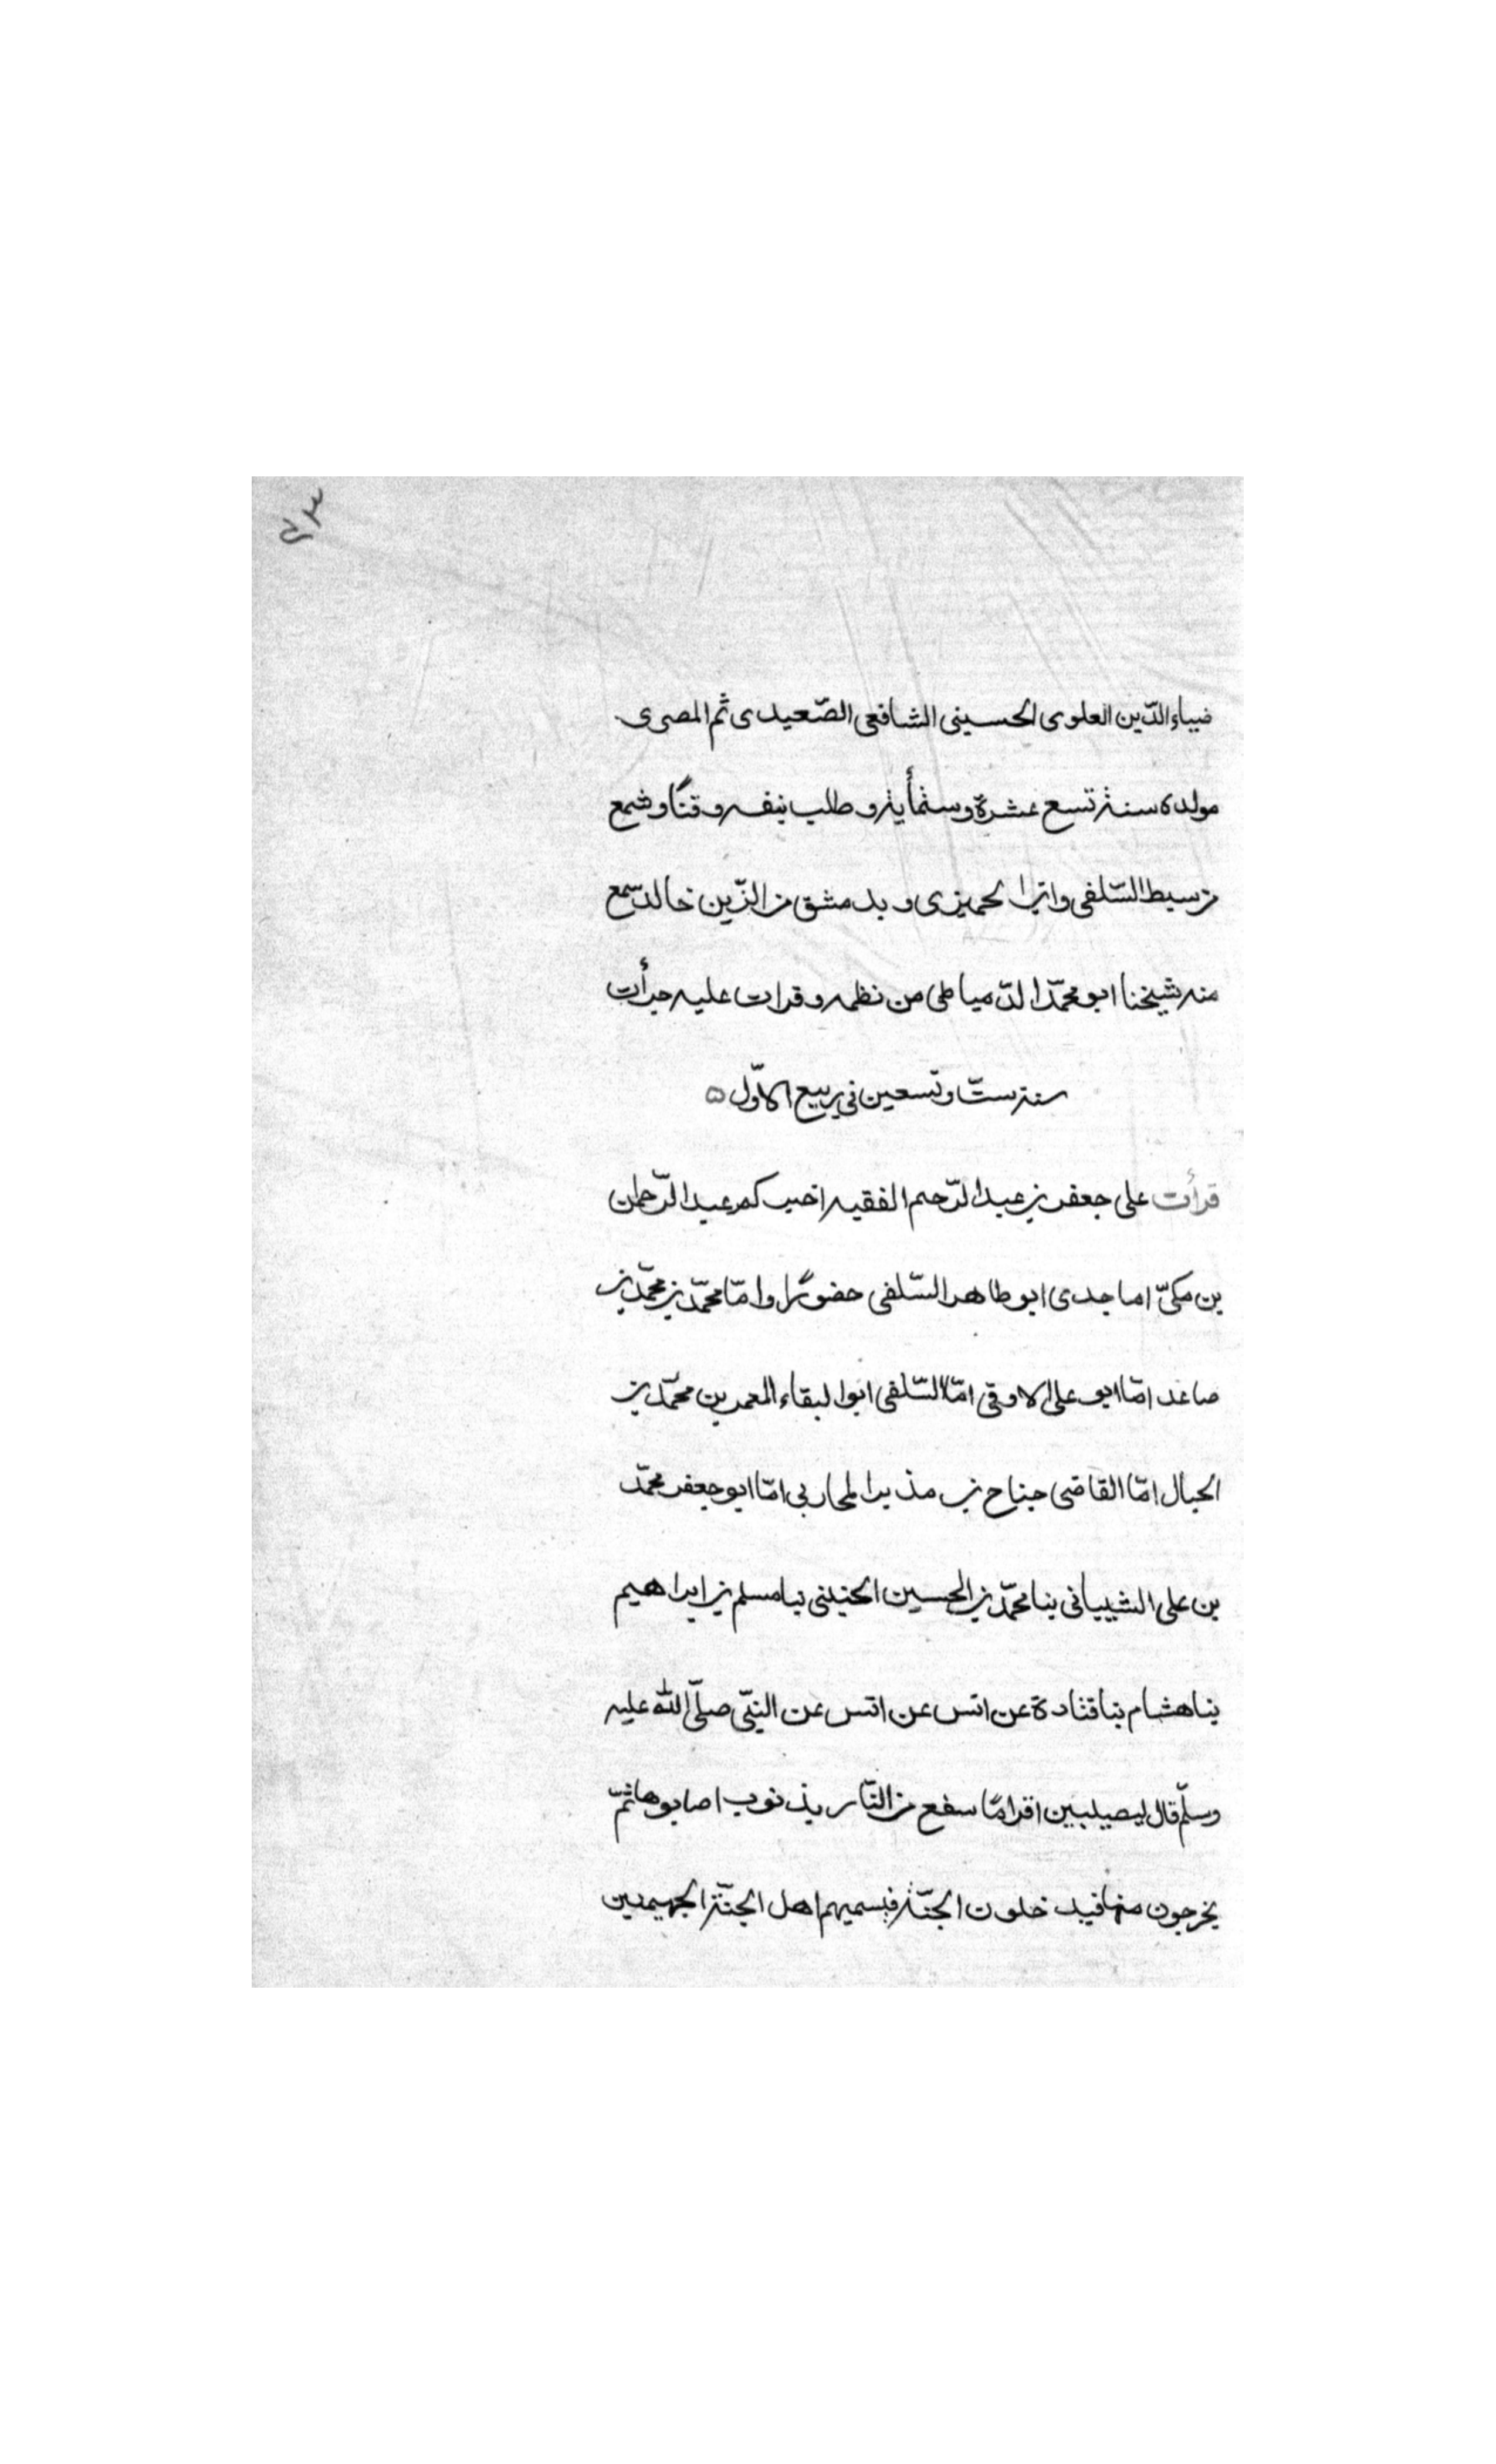 ضياء الدّين العلوى الحسينى الشافعى الصّعيدى ثم المصرى
مولده سنة تسع عشرة وستمأية وطلب بنفسه وقتًا وسمع
من سبط السّلفى وابن الحميزى وبدمشق من الزّين خالد سمع
منه شيخنا ابو محمّد الدّمياطى من نظمه وقرات عليه جرأت
سنة ستّ وتسعين فى ربيع الاوّل ٥
قرأت على جعفر بن عبد الرّحيم الفقيه اخبركم عبد الرّحمان
بن مكىّ اما جدى ابو طاهر السّلفى حضورًا وامّا محمّد بن محمّد بن
صاعد امّا ابو على الاوقى امّا السّلفى ابوا لبقاء المعمر بن محمّد بن
الحبال امّا القاضى جناح بن مذير المحاربى امّا ابو جعفر محمّد
بن على الشيبانى بنا محمّد بن الحسين الحنينى بنا مسلم بن ابراهيم
بنا هشام بنا قتادة عن انس عن انس عن النبّى صلّى الله عليه
وسلّم قال ليصيبين اقرامًا سفع من النّار بذنوب اصابوها ثمّ
يخرجون منها فيدخلون الجنّة فيسميهم اهل الجنّة الجهيمين